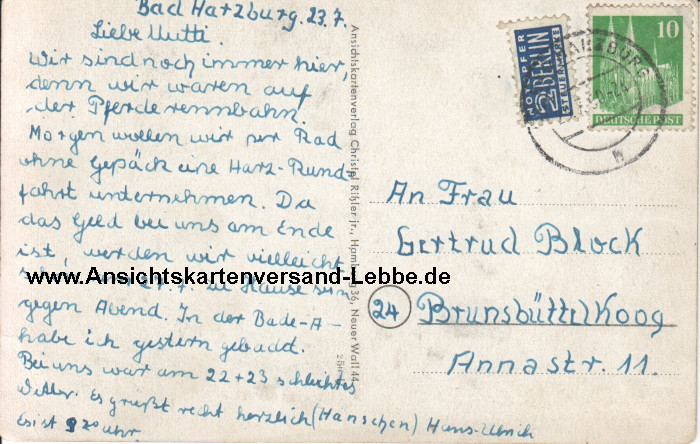 Bad Harzburg. 23.7.
Liebe Mutti.
Wir sind noch immer hier,
denn wir waren auf
der Pferderennbahn.
Morgen wollen wir per Rad
ohne Gepäck eine Harz-Rund-
fahrt unternehmen. Da
das Geld bei uns am Ende
ist, werden wir vielleicht
zu Hause sein
gegen Abend. In der Bade-A-
habe ich gestern gebadet.
Bei uns war am 22+23 schlechtes
Wetter. Es grüßt recht herzlich (Hänschen) Hans-Ulrich
Es ist 9 20 Uhr
www.Ansichtskartenversand-Lebbe.de
Ansichtskartenverlag Christel Rihler jr., Hamburg 36, Neuer Wall 44
NOTOPFER
2 BERLIN
STEUERMARKE
10
DEUTSCHE POST
HARZBURG
h
An Frau
Gertrud Block
24 Brunsbüttelkoog
Annastr. 11.